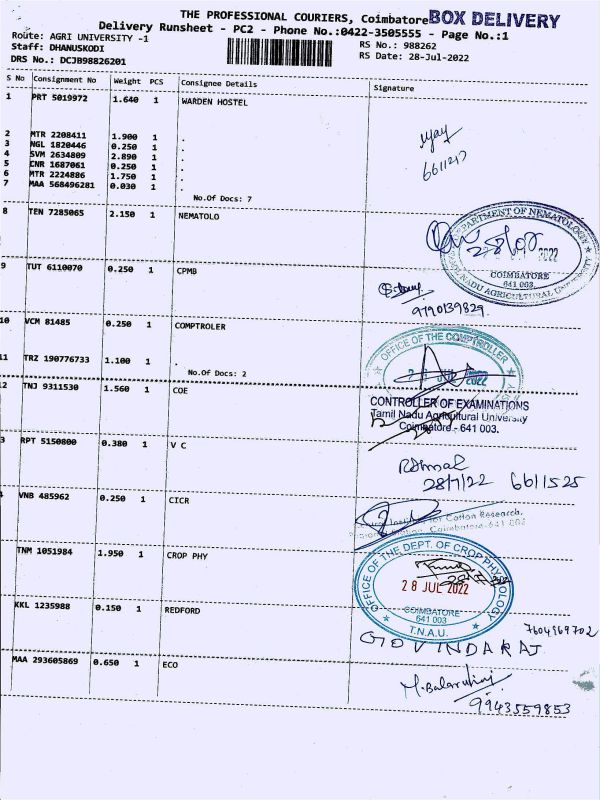 THE PROFESSIONAL COURIERS, Coimbatore BOX DELIVERY
Delivery Runsheet - PC2 - Phone No.:0422-3505555 - Page No.:1
Route: AGRI UNIVERSITY -1
RS No.: 988262
Staff: DHANUSKODI
RS Date: 28-Jul-2022
DRS No.: DCJB98826201
S No Consignment No Weight PCS Consignee Details Signature
1 PRT 5019972 1.640 1 WARDEN HOSTEL
2 MTR 2208411 1.900 1 .
3 NGL 1820446 0.250 1 .
4 SVM 2634809 2.890 1 .
5 CNR 1687061 0.250 1 .
6 MTR 2224886 1.750 1 .
7 MAA 568496281 0.030 1 .
No.Of Docs: 7
8 TEN 7285065 2.150 1 NEMATOLO
DEPARTMENT OF NEMATOLOGY
2022
COIMBATORE
641 003.
TAMIL NADU AGRICULTURAL
9 TUT 6110070 0.250 1 CPMB
9790139829
10 VCM 81485 0.250 1 COMPTROLER
OFFICE OF THE COMPTROLLER
2022
11 TRZ 190776733 1.100 1 .
No.Of Docs: 2
12 TNJ 9311530 1.560 1 COE
CONTROLLER OF EXAMINATIONS
Tamil Nadu Agricultural University
Coimbatore - 641 003.
3 RPT 5150800 0.380 1 V C
28/7/22 6611525
4 VNB 485962 0.250 1 CICR
for Cotton Research,
Station, Coimbatore-641 003
TNM 1051984 1.950 1 CROP PHY
OFFICE OF THE DEPT. OF CROP PHYSIOLOGY
28 JUL 2022
COIMBATORE
641 003
T.N.A.U.
KKL 1235988 0.150 1 REDFORD
GOVINDARAJ
MAA 293605869 0.650 1 ECO
9943559853